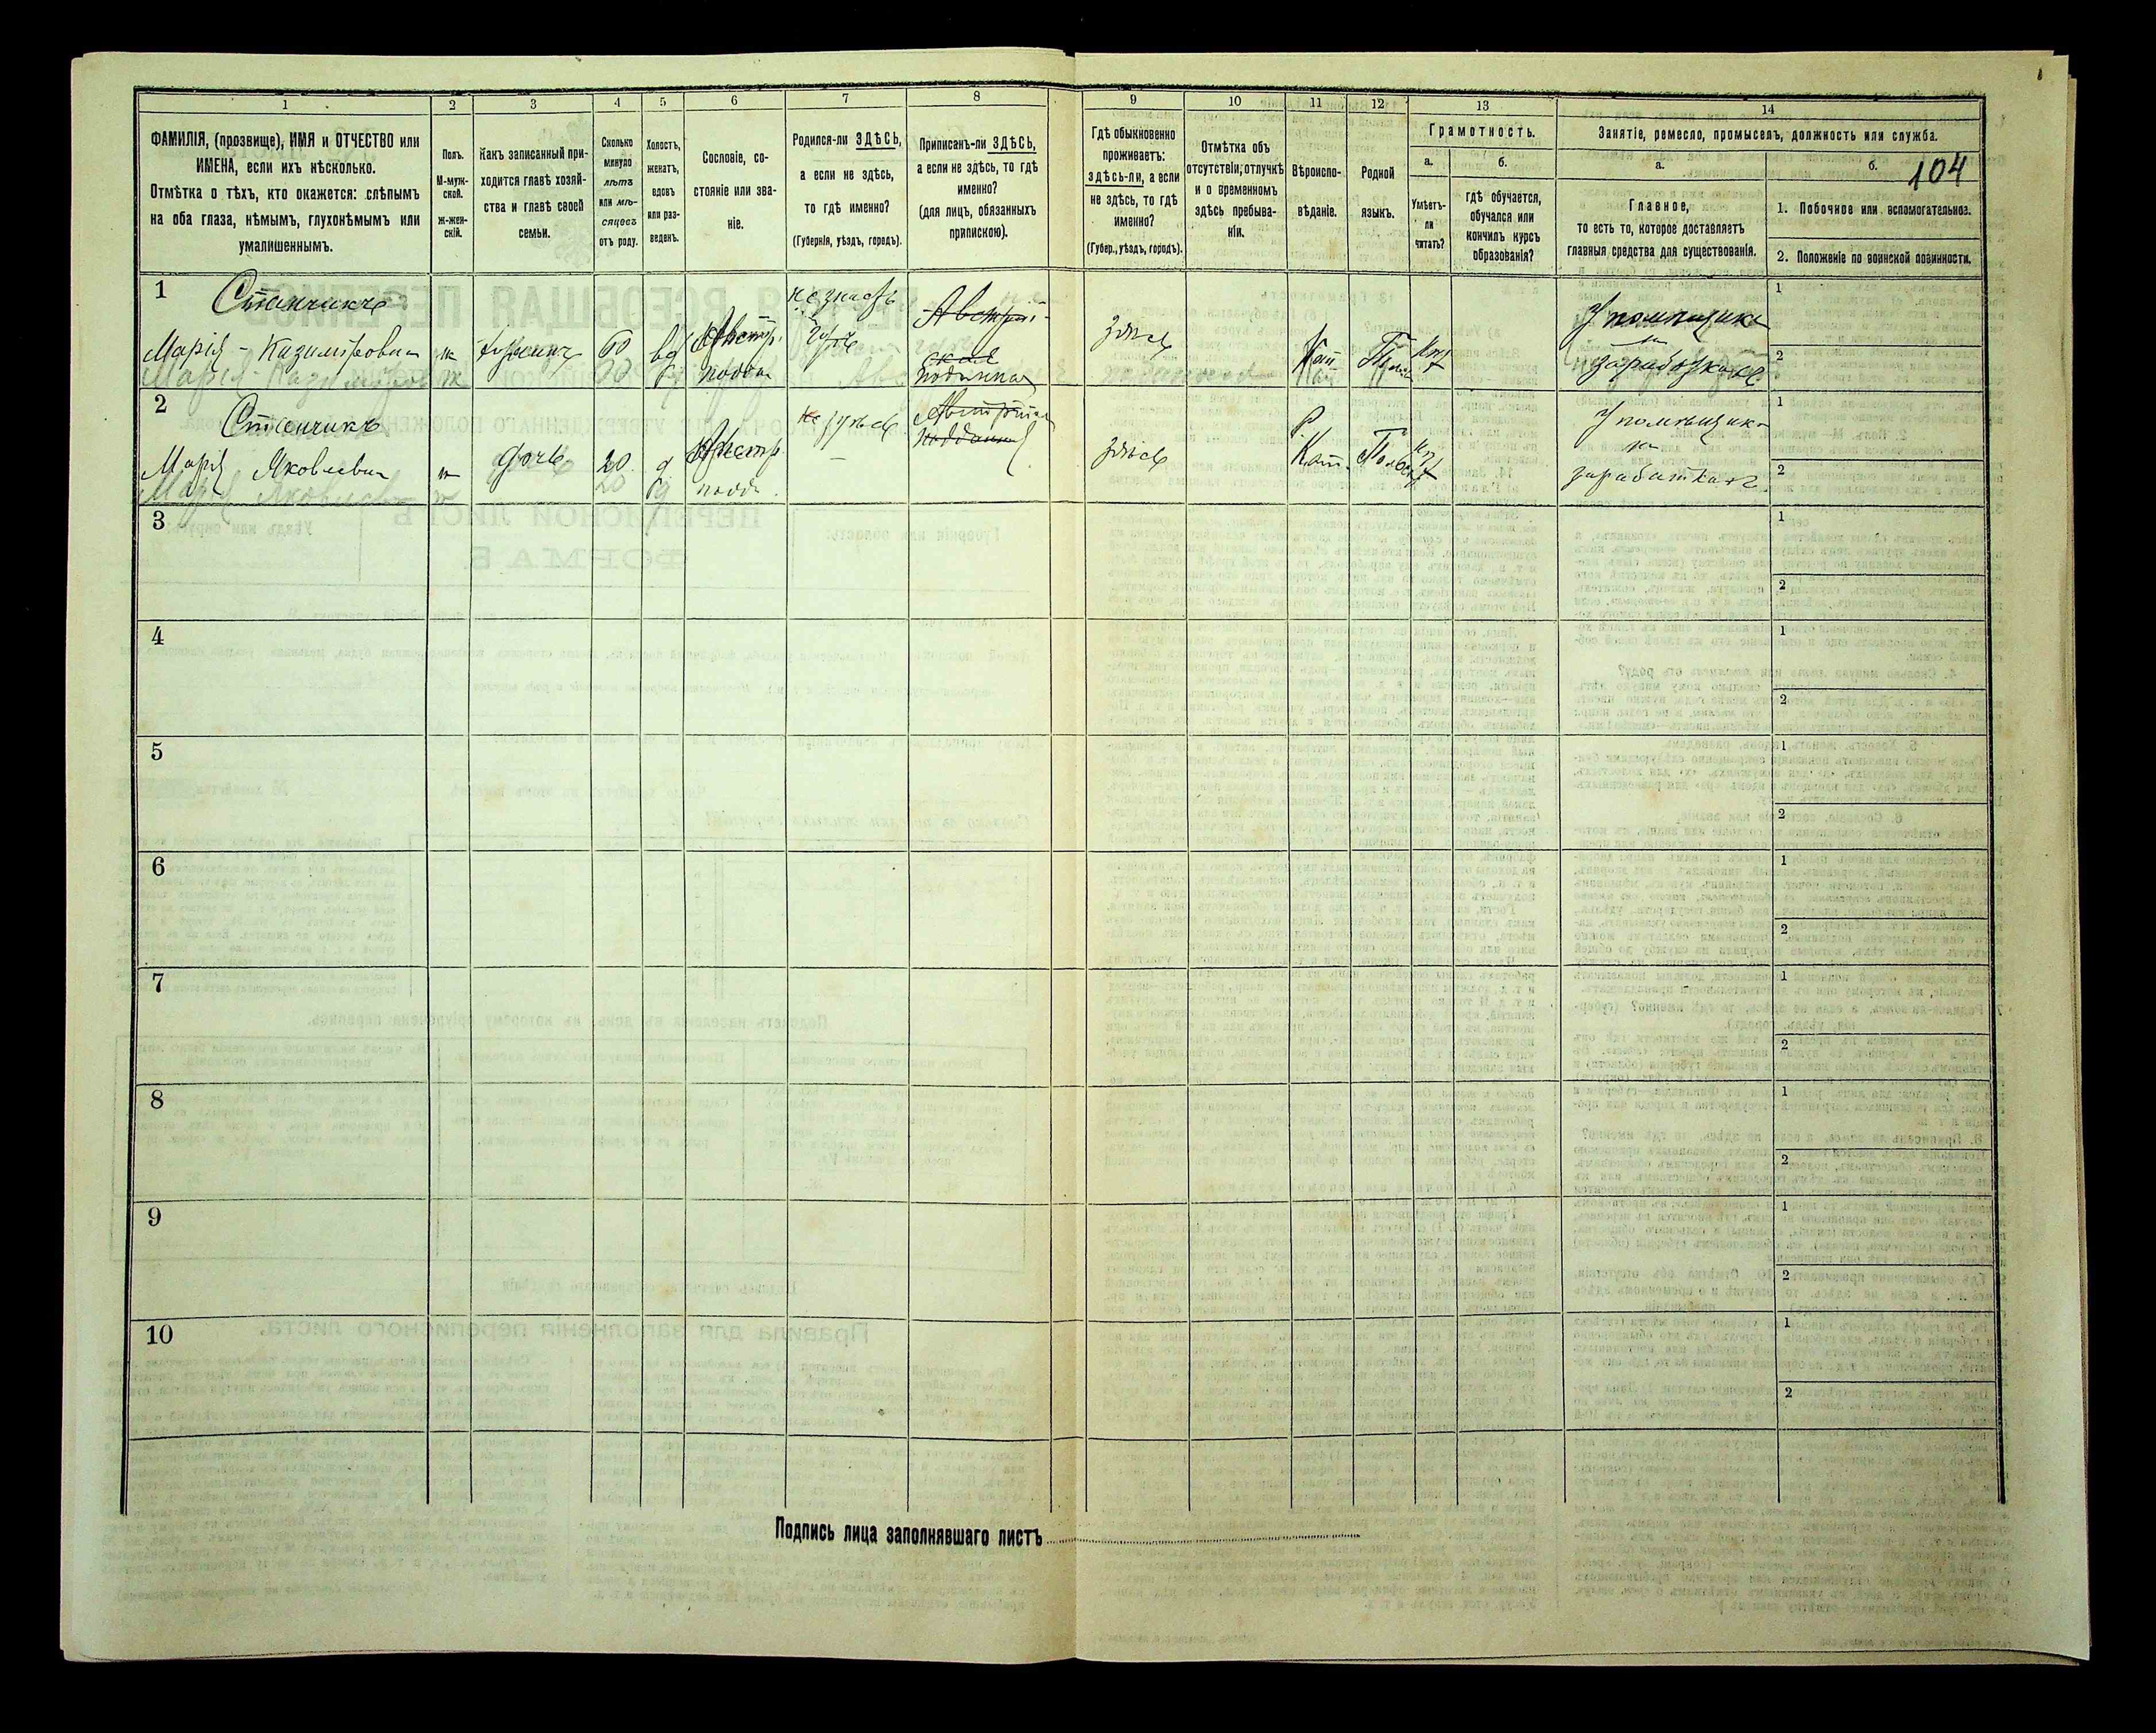 1
2
3
4
5
6
7
8
9
10
11
12
13
14
ФАМИЛІЯ, (прозвище), ИМЯ и ОТЧЕСТВО или
ИМЕНА, если ихъ нѣсколько.
Отмѣтка о тѣхъ, кто окажется: слѣпымъ
на оба глаза, нѣмымъ, глухонѣмымъ или
умалишеннымъ.
Полъ.
М-муж-
ской.
Ж-жен-
скій.
Какъ записанный при-
ходится главѣ хозяй-
ства и главѣ своей
семьи.
Сколько
минуло
лѣтъ
или мѣ-
сяцевъ
отъ роду.
Холостъ,
женатъ,
вдовъ
или раз-
веденъ.
Сословіе, со-
стояніе или зва-
ніе.
Родился-ли ЗДѢСЬ,
а если не здѣсь,
то гдѣ именно?
(Губернія, уѣздъ, городъ).
Приписанъ-ли ЗДѢСЬ,
а если не здѣсь, то гдѣ
именно?
(для лицъ, обязанныхъ
припискою).
Гдѣ обыкновенно
проживаетъ:
здѣсь-ли, а если
не здѣсь, то гдѣ
именно?
(Губер., уѣздъ, городъ).
Отмѣтка объ
отсутствіи, отлучкѣ
и о временномъ
здѣсь пребыва-
ніи.
Вѣроиспо-
вѣданіе.
Родной
языкъ.
Грамотность.
а.
б.
Умѣетъ-
ли
читать?
гдѣ обучается,
обучался или
кончилъ курсъ
образованія?
Занятіе, ремесло, промыселъ, должность или служба.
а.
б.
104
Главное,
то есть то, которое доставляетъ
главныя средства для существованія.
1. Побочное или вспомогательное.
2. Положеніе по воинской повинности.
1
Станчикъ
Марія - Казиміровна
ж
60
вд
Австр.
подда
не знаетъ
Австрій-
ская
подданная
здѣсь
Кат
У помѣщика
на
заработкахъ
1
2
2
Станчикъ
Марія Яковлевна
ж
дочь
20
д
Австр
подд.
не здѣсь
здѣсь
Р.
Кат.
Польс
У помѣщика
на
заработкахъ
1
2
3
1
2
4
1
2
5
1
2
6
1
2
7
1
2
8
1
2
9
1
2
10
1
2
Подпись лица заполнявшаго листъ